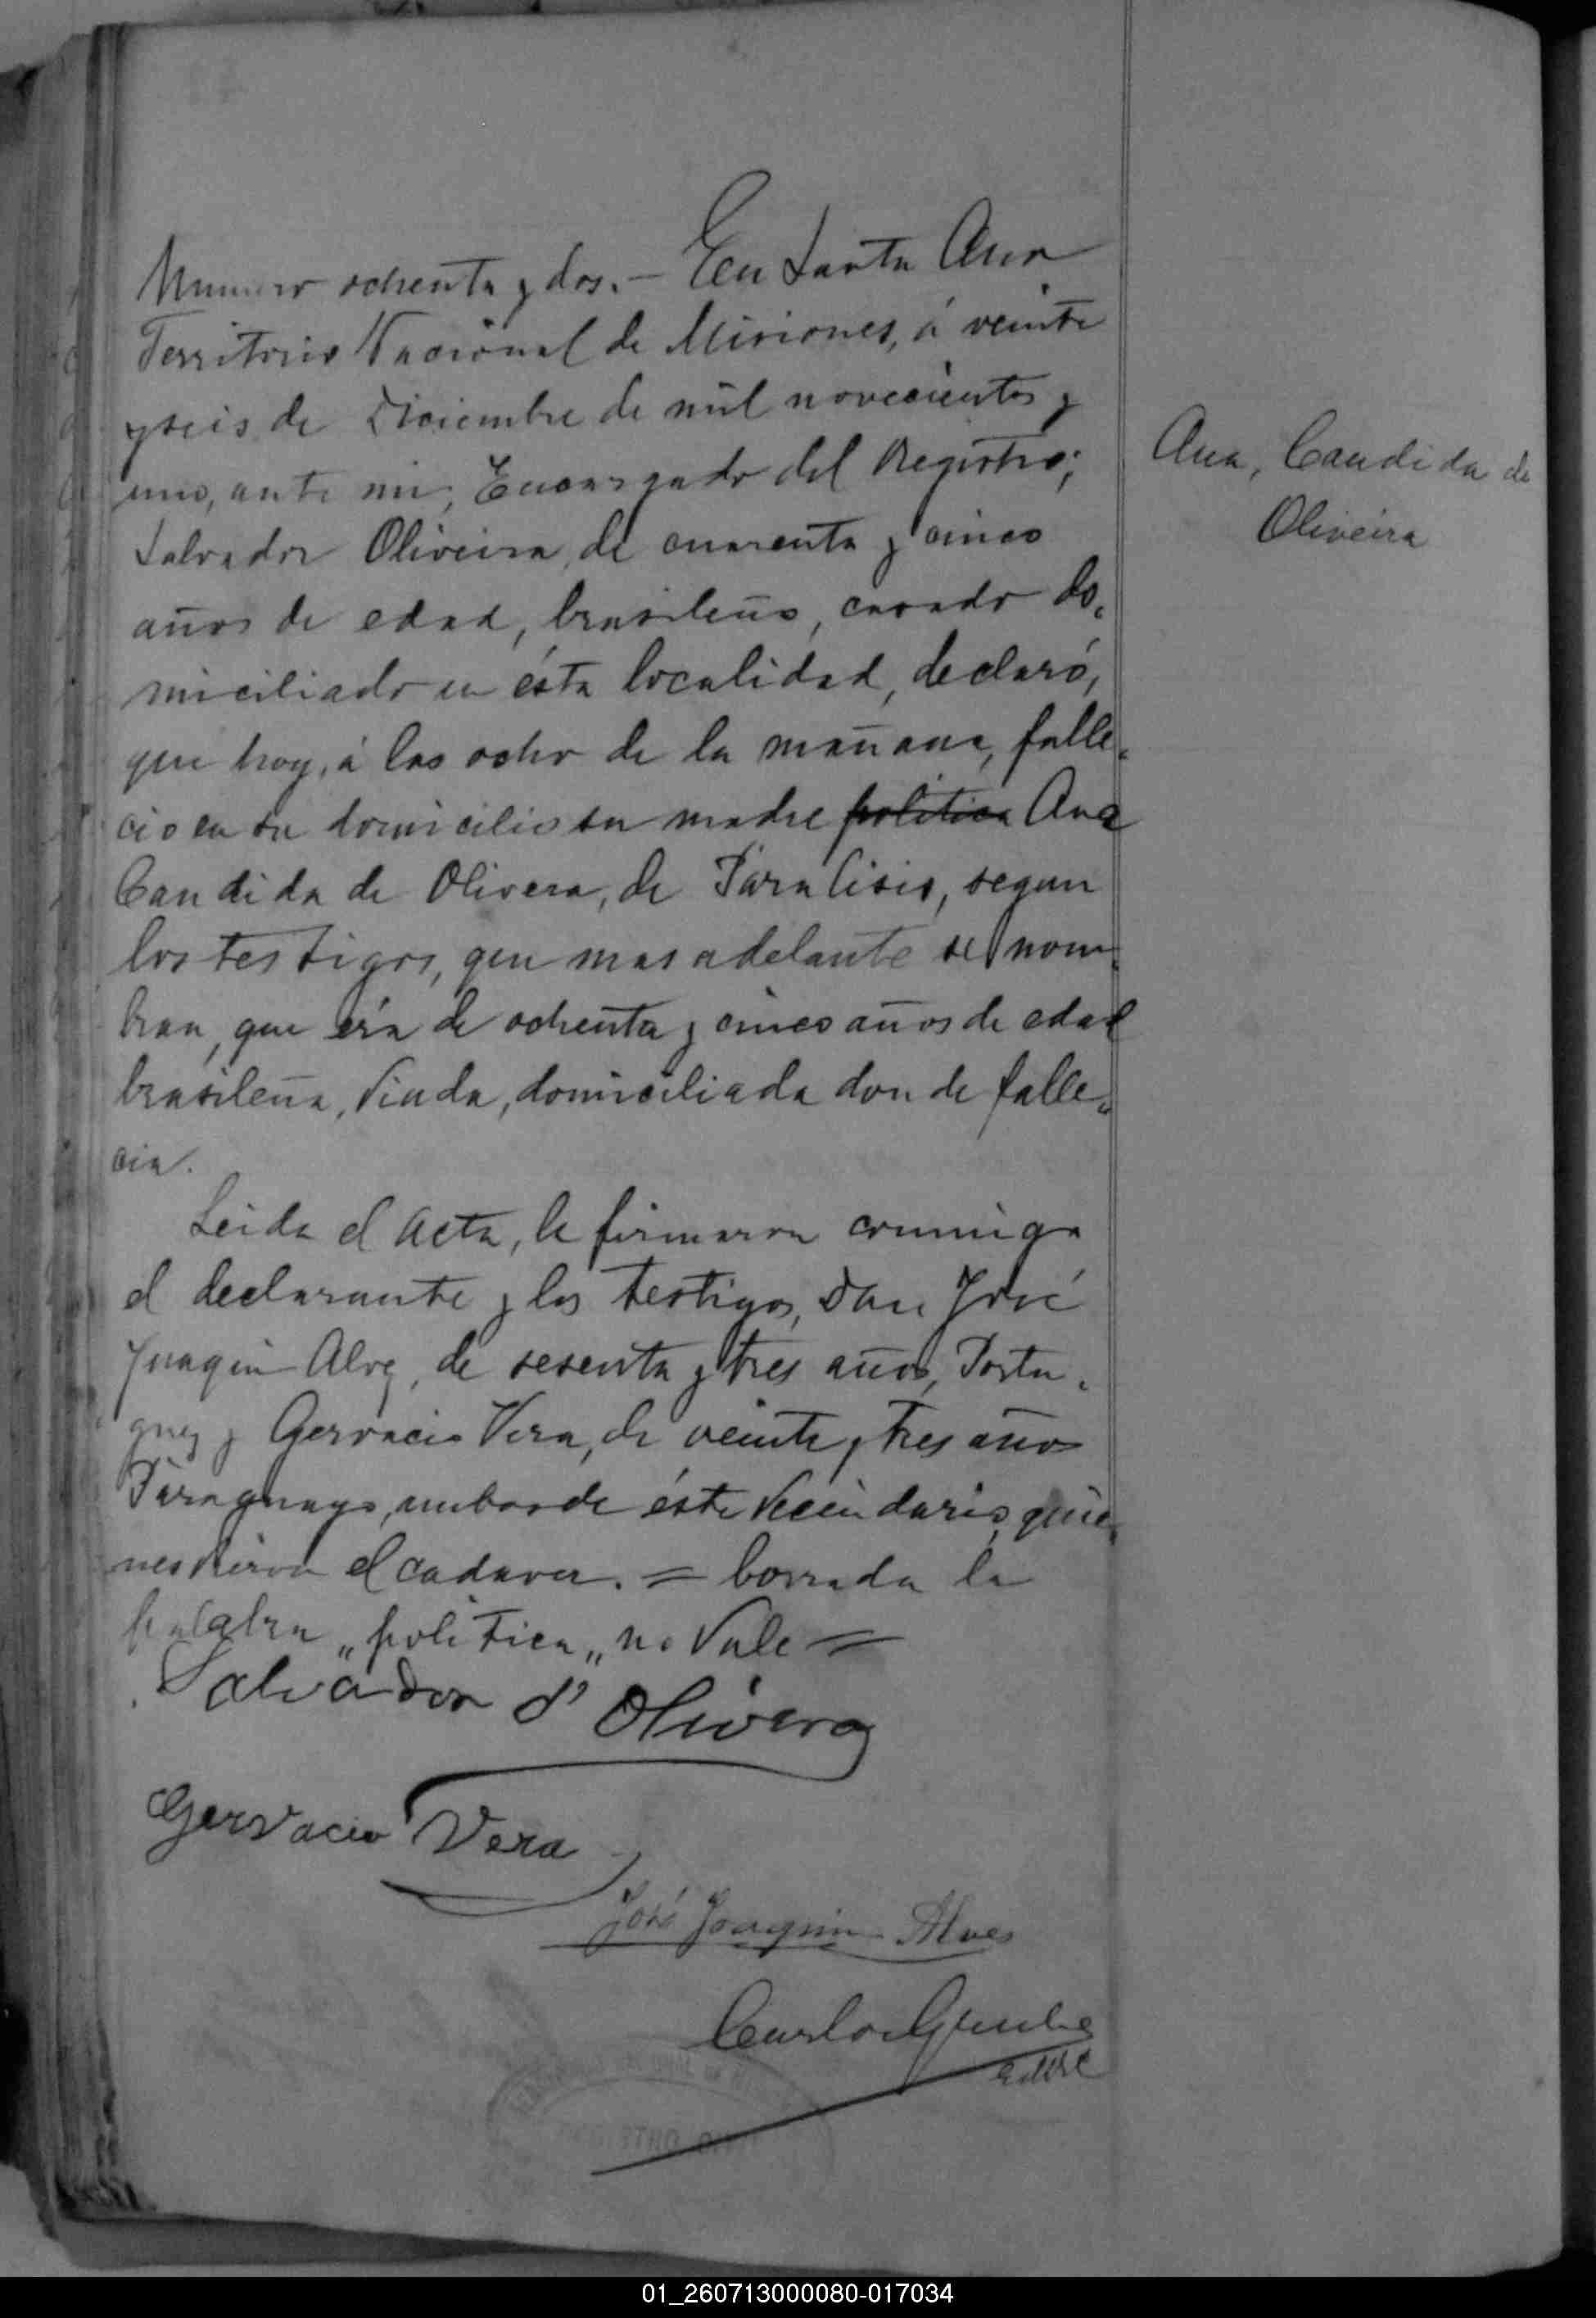 Numero ochenta y dos. — En Santa Ana
Territorio Nacional de Misiones, á veinte
y seis de Diciembre de mil novecientos y
uno, ante mi, Encargado del Registro;
Salvador Oliveira, de cuarenta y cinco
años de edad, brasileño, casado do„
miciliado en ésta localidad, declaró,
que hoy, á las ocho de la mañana, falle„
cio en su domicilio su madre politica Ana
Candida de Olivera, de Paralisis, segun
los testigos, que mas adelante se nom„
bran, que éra de ochenta y cinco años de edad
brasileña, Viuda, domiciliada donde falle„
cia.
Leida el Acta, la firmaron conmigo
el declarante y los testigos, Don José
Juaquin Alvez, de sesenta y tres años, Portu„
guez y Gervacio Vera, de veinte y tres años
Paraguayo, ambos de éste Vecindario, quie„
nes vieron el cadaver. = borrada la
palabra „politica„ no Vale =
Salvador d' Olivera
Gervacio Vera
José Joaquin Alves
Carlos
Ana, Candida de
Oliveira
REGISTRO CIVIL
01_260713000080-017034